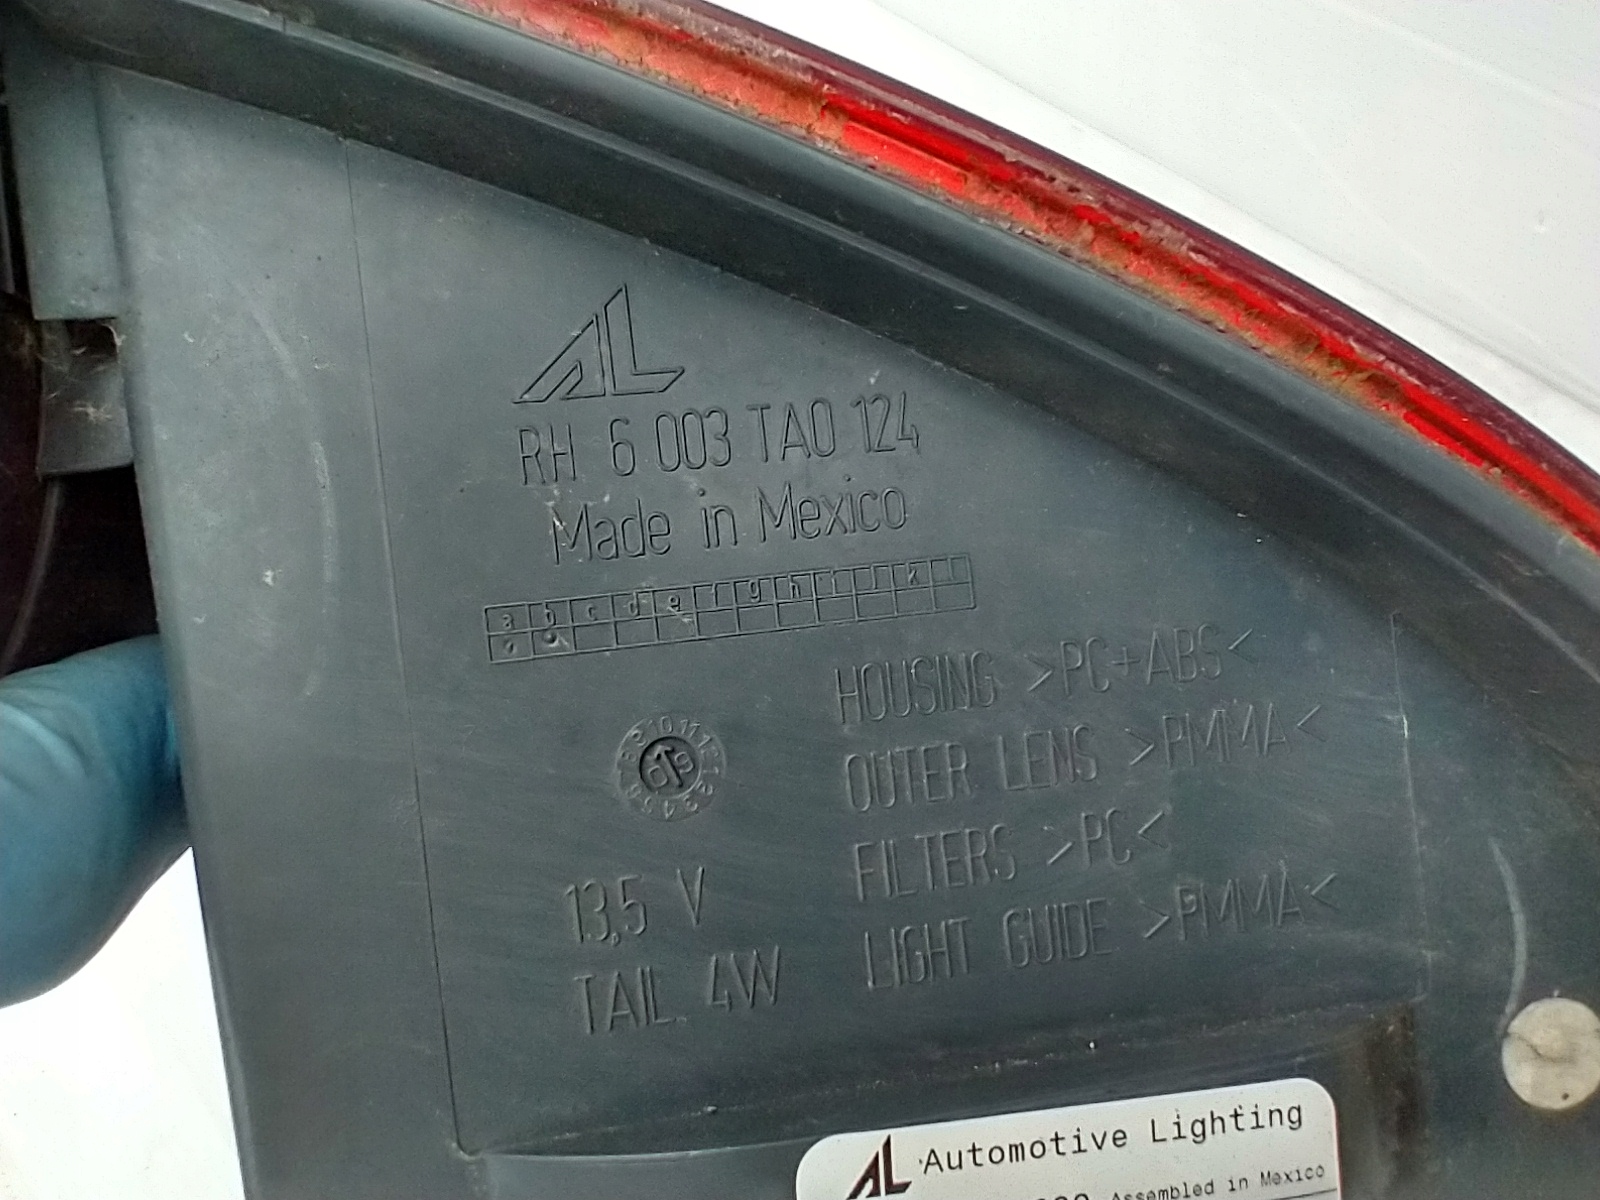 AL
RH 6 003 TA0 124
Made in Mexico
a b c d e f g h i j k l
HOUSING >PC+ABS<
OUTER LENS >PMMA<
FILTERS >PC<
LIGHT GUIDE >PMMA<
13,5 V
TAIL. 4W
AL Automotive Lighting
Assembled in Mexico